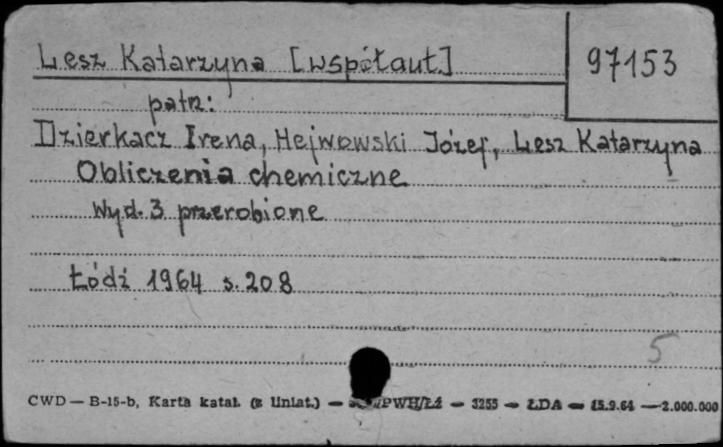 Lesz Katarzyna [współaut.]
97153
patrz:
Dzierkacz Irena, Hejwowski Józef, Lesz Katarzyna
Obliczenia chemiczne
Wyd. 3 przerobione
Łódź 1964 s. 208
5
CWD — B-15-b, Karta katal. (z Uniat.) — PWH/Łź — 3255 — ŁDA — 15.9.64 — 2.000.000